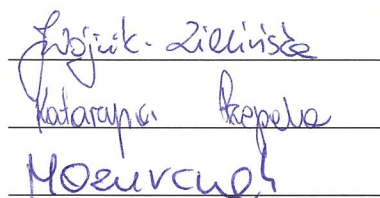 J. Wójcik-Zielińska
Katarzyna Rzepka
Mazurczak